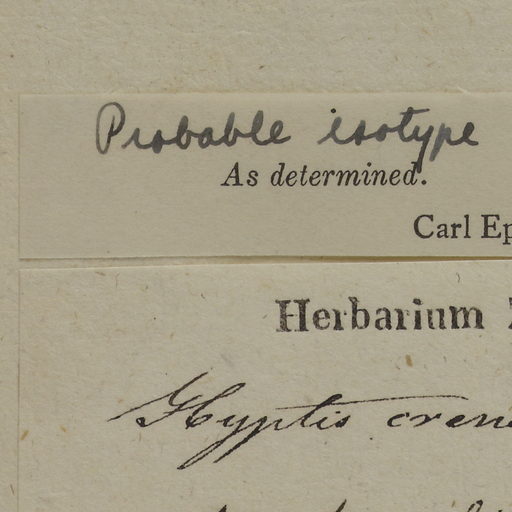 Probable isotype
As determined.
Carl Ep
Herbarium
Hyptis cren